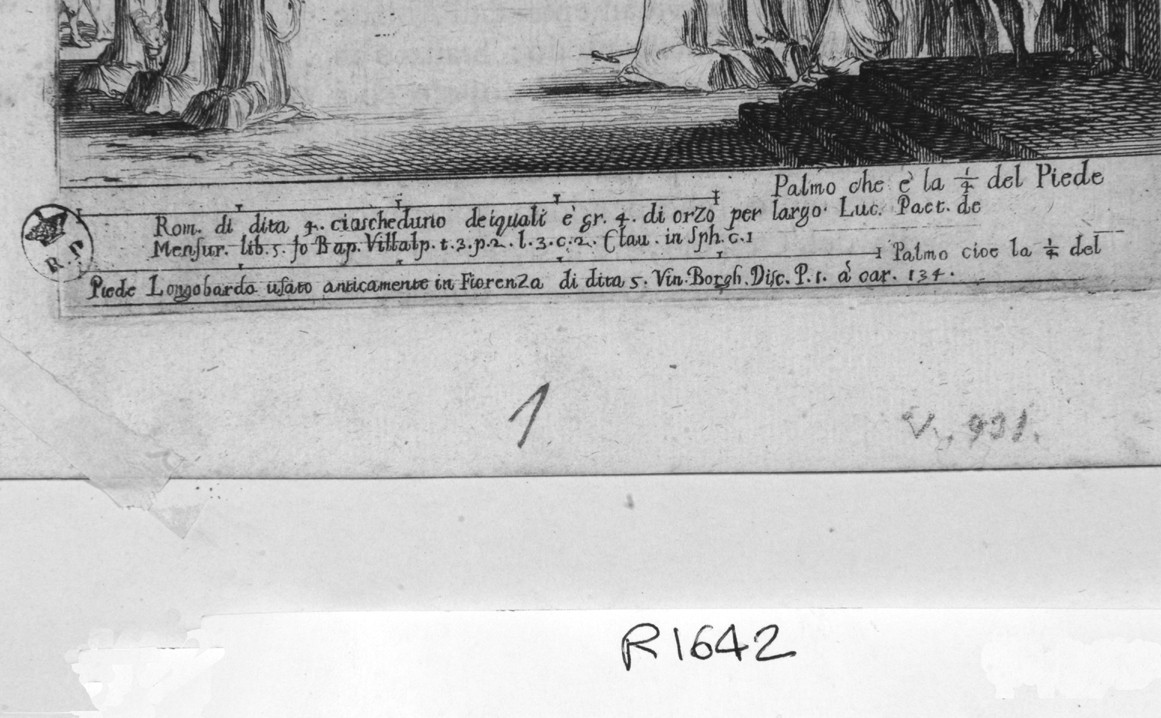 Palmo che è la 1/4 del Piede
Rom. di dita 4. ciascheduno de iquali è gr. 4. di orzo per largo. Luc. Paet. de
Mensur. lib. 5. Jo Bap. Villalp. t. 3. p. 2. l. 3. c. 2. Clau. in Sph. c. 1
Palmo cioe la 1/4 del
Piede Longobardo usato anticamente in Fiorenza di dita 5. Vin. Borgh. Disc. P. 1. à car. 134.
R. P
1
V. 931.
R1642